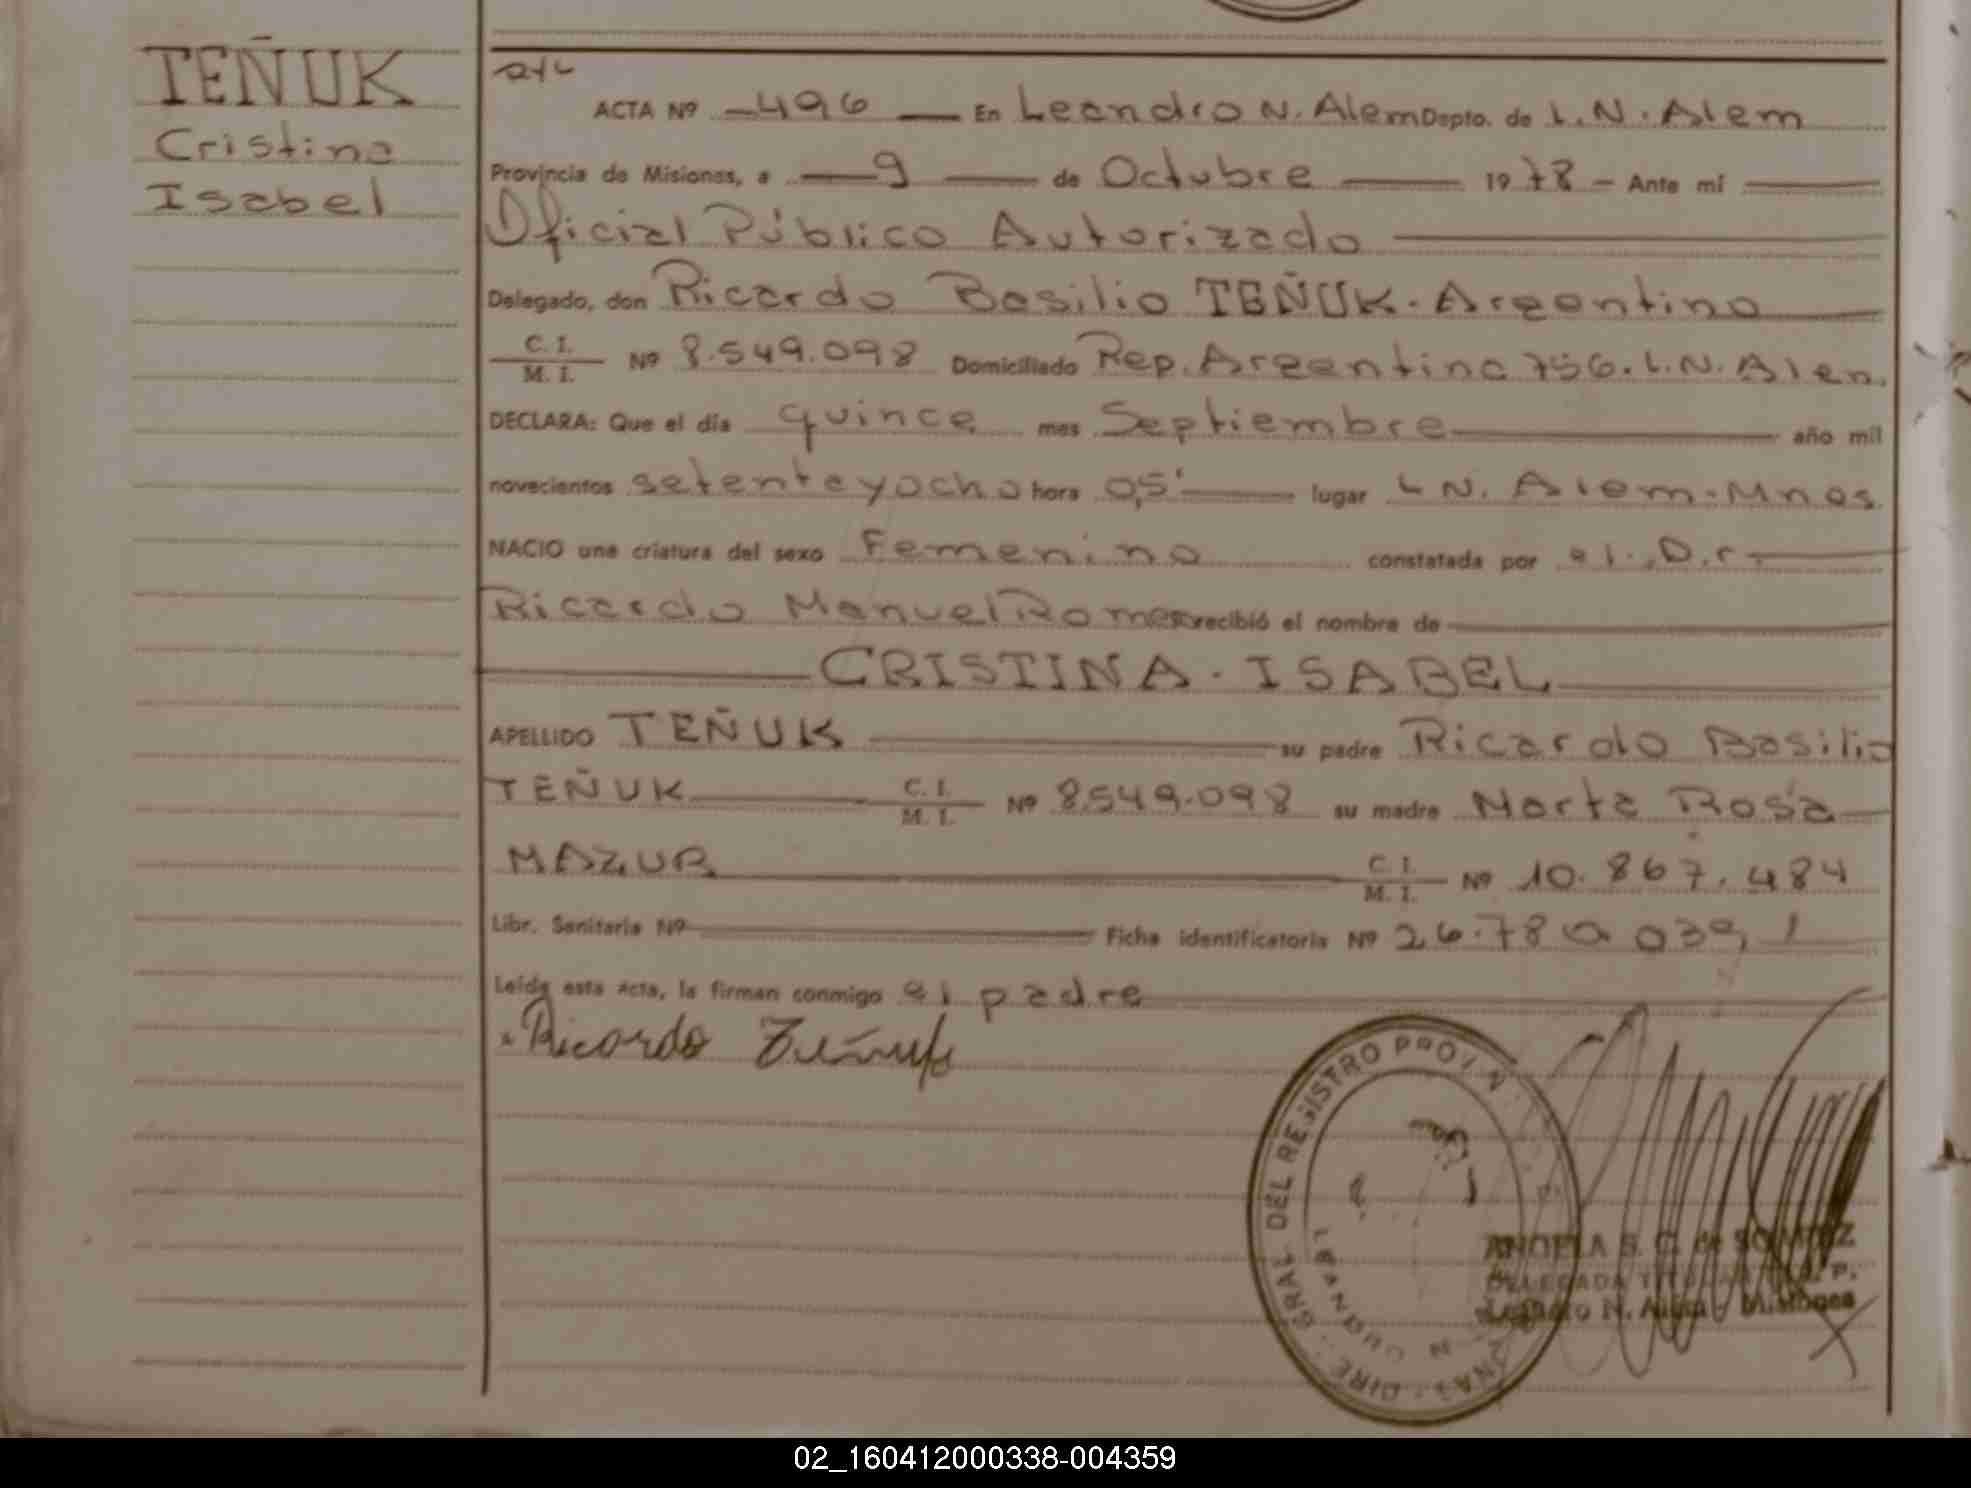 TEÑUK
Cristina
Isabel
ACTA Nº 496 En Leandro N. Alem Depto. de L.N. Alem
Provincia de Misiones, a 9 de Octubre 1978 - Ante mí
Oficial Público Autorizado
Delegado, don Ricardo Basilio TEÑUK. Argentino
C. I. / M. I. Nº 8.549.098 Domiciliado Rep. Argentina 756. L.N. Alem.
DECLARA: Que el día quince mes Septiembre año mil
novecientos setenta y ocho hora 0,5' lugar L N. Alem. Mnes
NACIO una criatura del sexo Femenino constatada por el Dr.
Ricardo Manuel Romero recibió el nombre de
CRISTINA. ISABEL
APELLIDO TEÑUK su padre Ricardo Basilio
TEÑUK C. I. / M. I. Nº 8.549.098 su madre Marta Rosa
MAZUR C. I. / M. I. Nº 10.867.484
Libr. Sanitaria Nº Ficha identificatoria Nº 26.780.039
Leída esta acta, la firman conmigo el padre
Ricardo Teñuk
DIRE. GRAL DEL REGISTRO PROV.
ANGELA S. G. de
DELEGADA TITULAR R. P.
Leandro N. Alem - Misiones
02_160412000338-004359